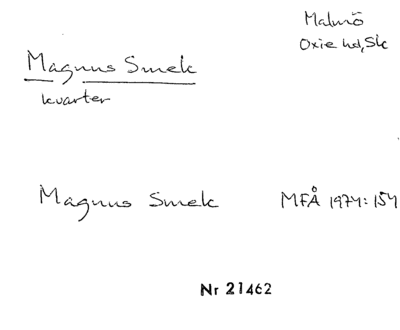 Malmö
Oxie hd, Sk
Magnus Smek
kvarter
Magnus Smek MFÅ 1974:154
Nr 21462